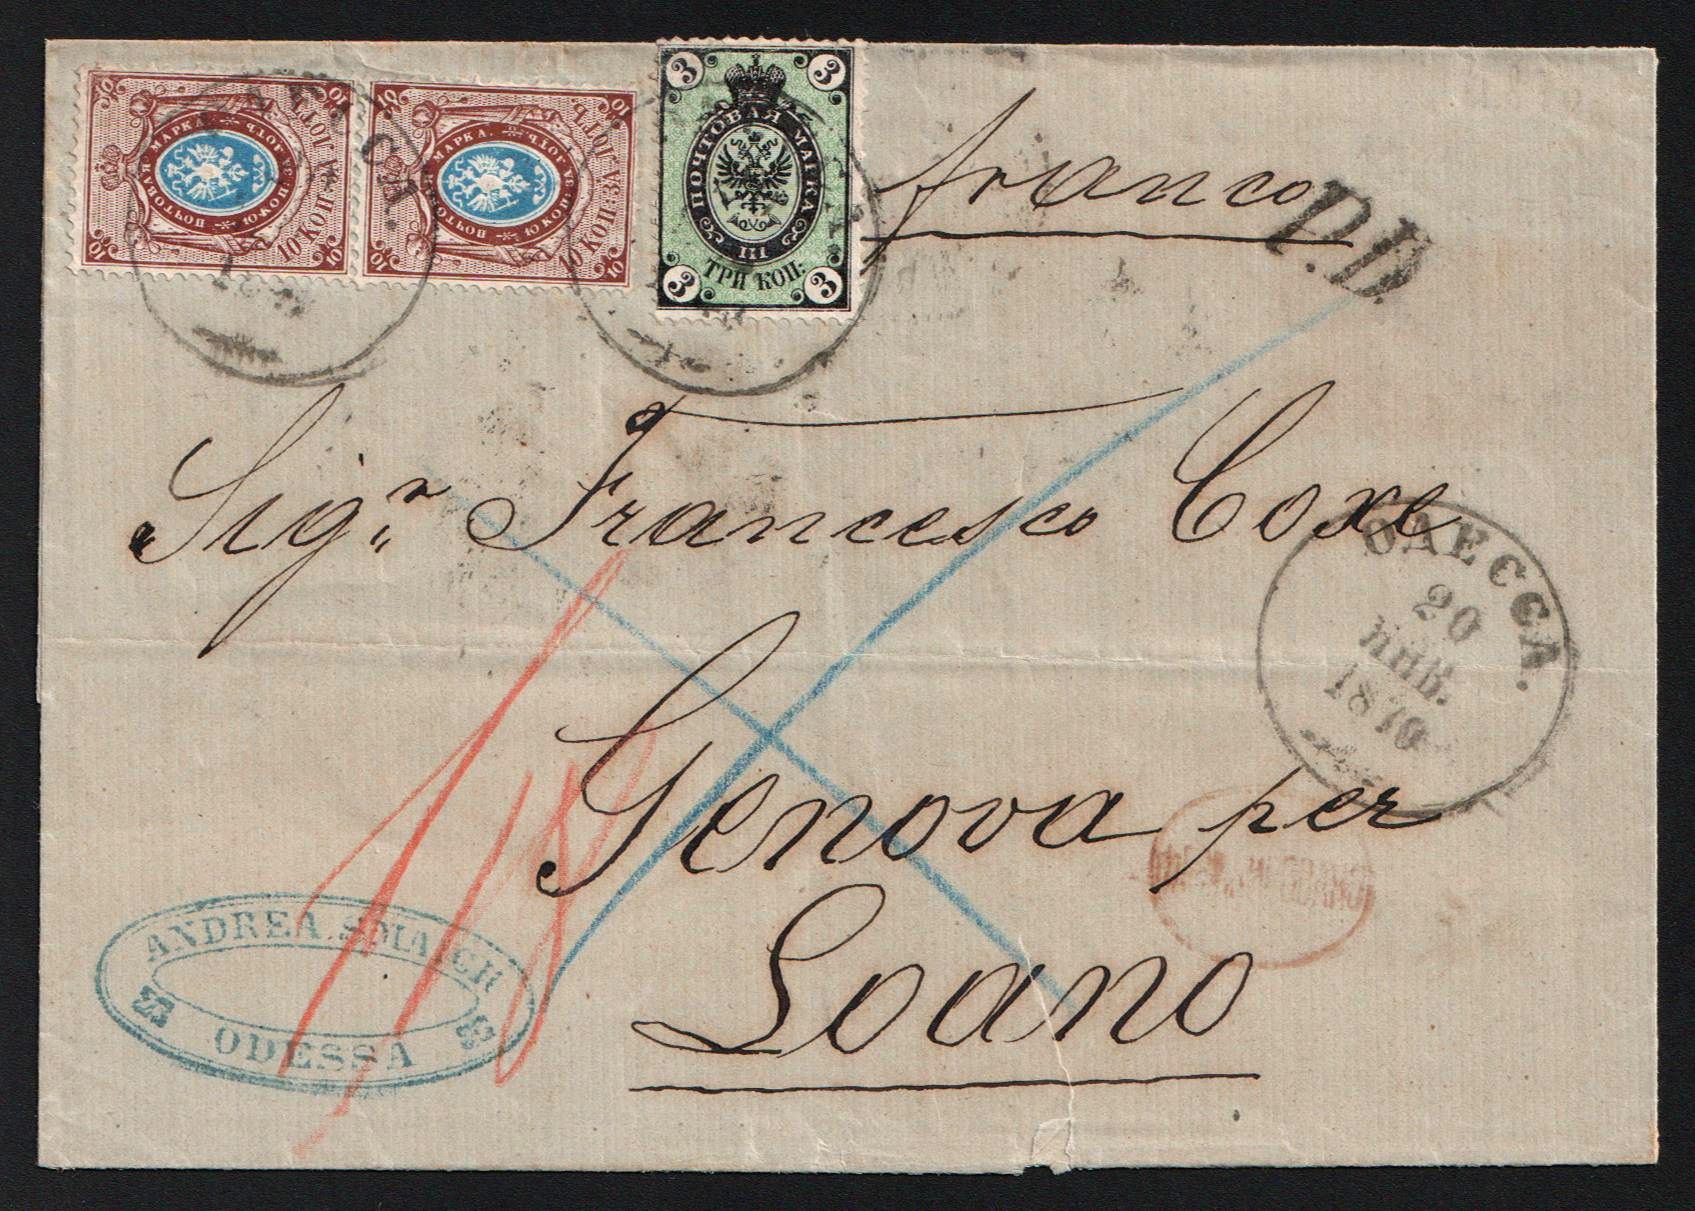 franco
P.D.
3 3
ПОЧТОВАЯ МАРКА
III
ТРИ КОП:
3 3
10 10
ПОЧТОВАЯ МАРКА.
10 КОП: ЗА ЛОТЪ
10 10
10 10
ПОЧТОВАЯ МАРКА.
10 КОП: ЗА ЛОТЪ
10 10
Sigr. Francesco Coxe
Genova per
Loano
ОДЕССА.
20
ЯНВ.
1870
ANDREA
ODESSA